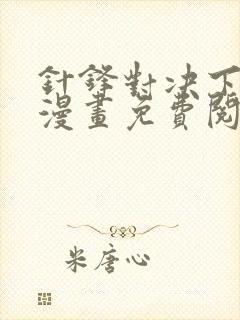 針鋒對决下
漫畫免費閱
米唐心